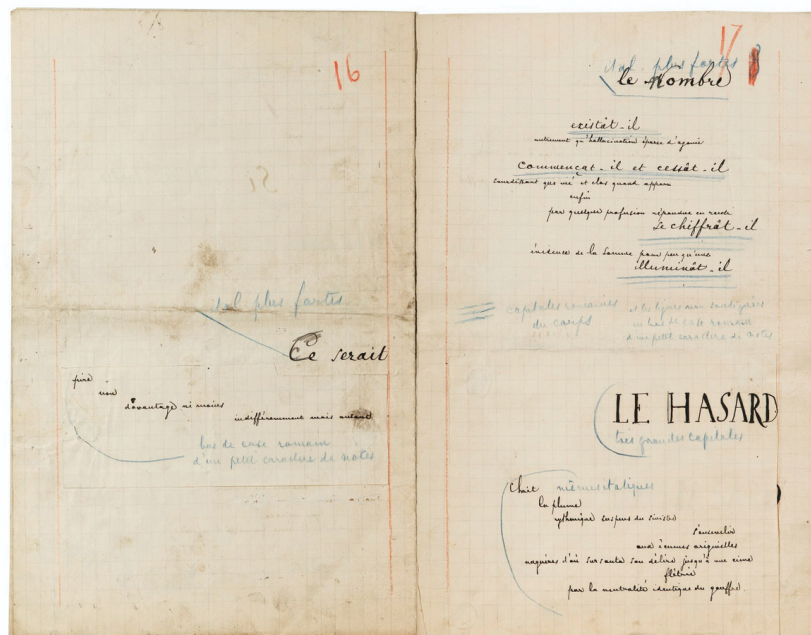 16
ital plus fortes
Ce serait
pire
non
davantage ni moins
indifféremment mais autant
bas de casse romain
d'un petit caractère de notes
17
ital. plus fortes
le Nombre
existât-il
autrement qu'hallucination éparse d'agonie
commençât-il et cessât-il
sourdant que nié et clos quand apparu
enfin
par quelque profusion répandue en rareté
se chiffrât-il
évidence de la somme pour peu qu'une
illuminât-il
capitales romaines
du corps
et les lignes non soulignées
en bas de casse romain
d'un petit caractère de notes
LE HASARD
très grandes capitales
Choit
mêmes italiques
la plume
rythmique suspens du sinistre
s'ensevelir
aux écumes originelles
naguères d'où sursauta son délire jusqu'à une cime
flétrie
par la neutralité identique du gouffre